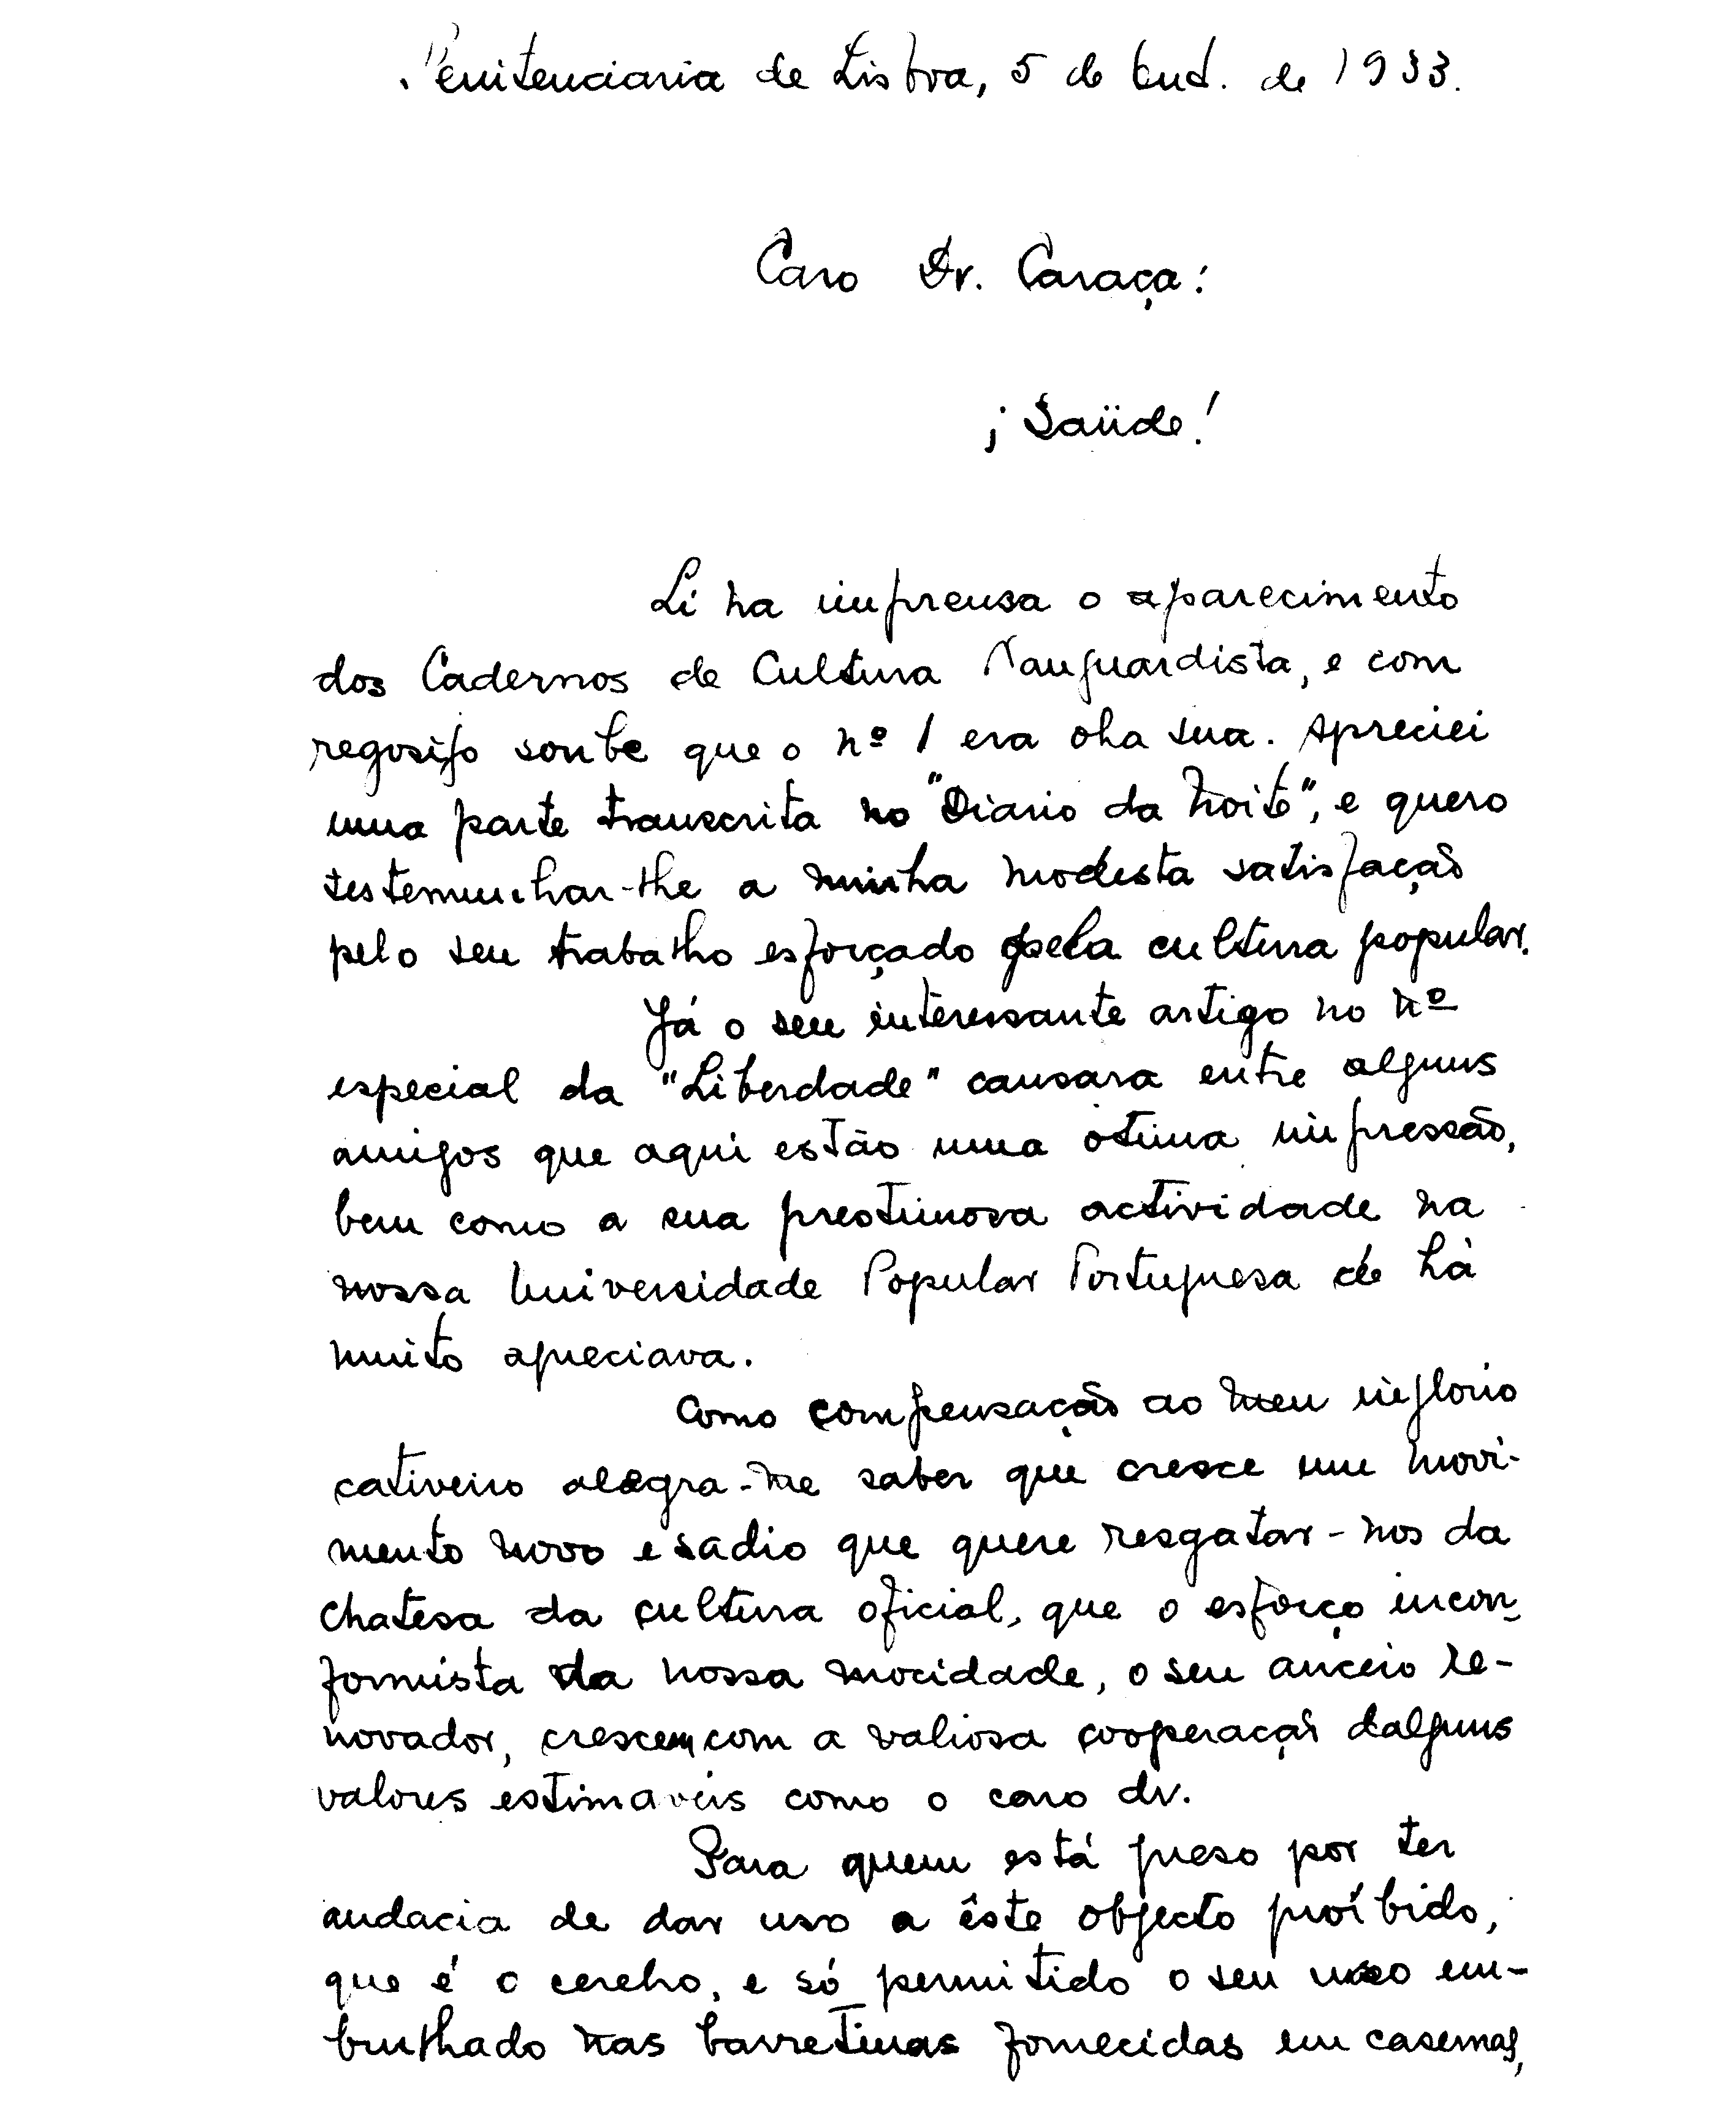 Penitenciaria de Lisboa, 5 de Out. de 1933.
Caro Dr. Caraça:
¡Saüde!
Li na imprensa o aparecimento
dos Cadernos de Cultura Vanguardista, e com
regosijo soube que o nº 1 era obra sua. Apreciei
uma parte transcrita no "Diario da Noite", e quero
testemunhar-lhe a minha modesta satisfação
pelo seu trabalho esforçado pela cultura popular.
Já o seu interessante artigo no nº
especial da "Liberdade" causara entre alguns
amigos que aqui estão uma otima impressão,
bem como a sua prestimosa actividade na
nossa Universidade Popular Portuguesa de há
muito apreciava.
Como compensação ao meu inglorio
cativeiro alegra-me saber que cresce um movi-
mento novo e sadio que quere resgatar-nos da
chatesa da cultura oficial, que o esforço incon-
formista da nossa mocidade, o seu anceio re-
novador, crescem com a valiosa cooperação dalguns
valores estimaveis como o caro dr.
Para quem está preso por ter
audacia de dar uso a êste objecto proíbido,
que é o cerebro, e só permitido o seu uso em-
brulhado nas barretinas fornecidas em casernas,